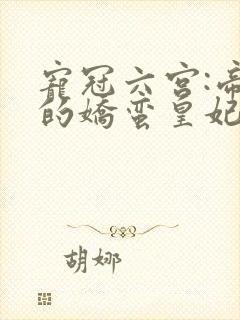 寵冠六宮:帝
的嬌蛮皇妃
胡娜